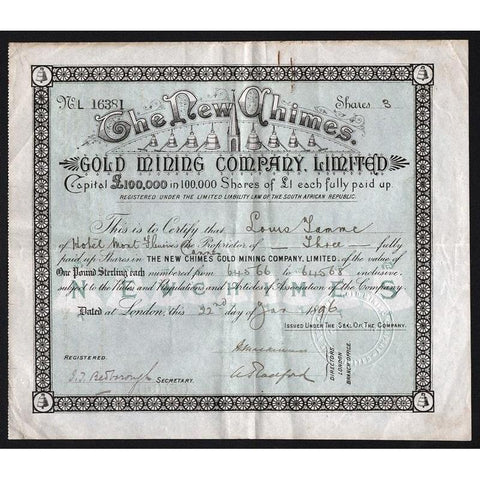 No. L 16381
Shares 3
The New Chimes.
GOLD MINING COMPANY, LIMITED
Capital £100,000 in 100,000 Shares of £1 each fully paid up.
REGISTERED UNDER THE LIMITED LIABILITY LAW OF THE SOUTH AFRICAN REPUBLIC.
This is to Certify that Louis
of Hotel Mont the Proprietor of Three fully
paid up Shares in THE NEW CHIMES GOLD MINING COMPANY, LIMITED, of the value of
One Pound Sterling each numbered from 64566 to 64568 inclusive,
subject to the Rules and Regulations and Articles of Association of the Company.
NEW CHIMES
Dated at London, this 22nd day of Jan 1896
ISSUED UNDER THE SEAL OF THE COMPANY.
REGISTERED.
SECRETARY.
DIRECTORS,
LONDON
BRANCH OFFICE.